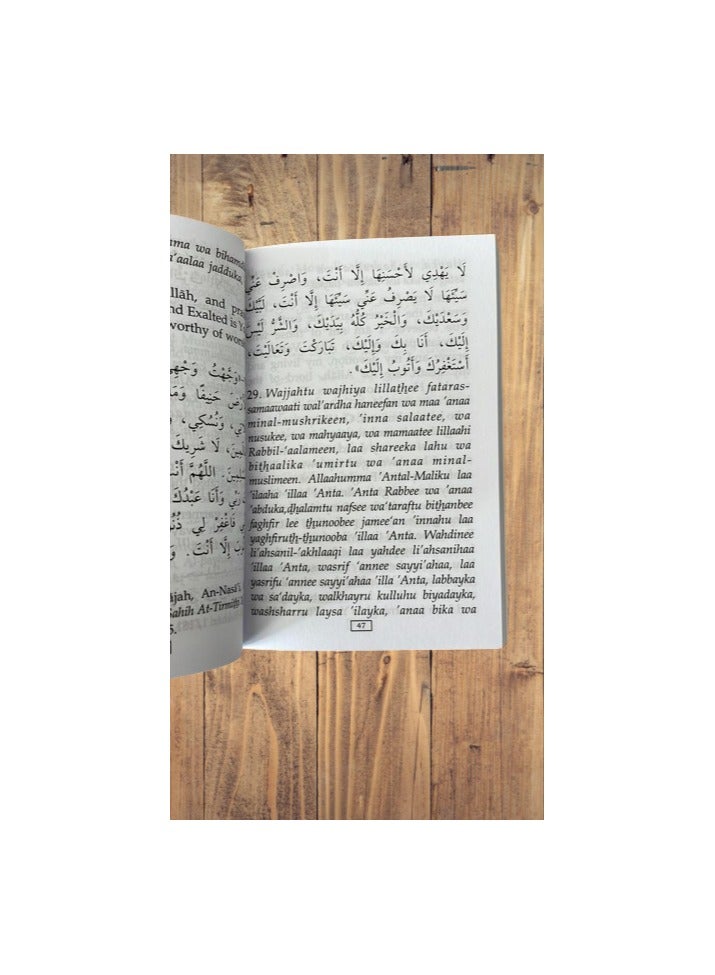 mma wa bihamd
a'aalaa jadduka,
llāh, and pra
nd Exalted is Y
worthy of wors
«وَجَّهْتُ وَجْهِيَ
حَنِيفًا وَمَ
وَنُسُكِي،
لَا شَرِيكَ
اللَّهُمَّ أَنْتَ
رَبِّي وَأَنَا عَبْدُكَ
فَاغْفِرْ لِي ذُنُ
إِلَّا أَنْتَ. وَ
ājah, An-Nasā'i,
Sahih At-Tirmithi
لَا يَهْدِي لِأَحْسَنِهَا إِلَّا أَنْتَ، وَاصْرِفْ عَنِّي
سَيِّئَهَا لَا يَصْرِفُ عَنِّي سَيِّئَهَا إِلَّا أَنْتَ، لَبَّيْكَ
وَسَعْدَيْكَ، وَالْخَيْرُ كُلُّهُ بِيَدَيْكَ، وَالشَّرُّ لَيْسَ
إِلَيْكَ، أَنَا بِكَ وَإِلَيْكَ، تَبَارَكْتَ وَتَعَالَيْتَ،
أَسْتَغْفِرُكَ وَأَتُوبُ إِلَيْكَ».
29. Wajjahtu wajhiya lillaṯhee fataras-
samaawaati wal'ardha haneefan wa maa 'anaa
minal-mushrikeen, 'inna salaatee, wa
nusukee, wa mahyaaya, wa mamaatee lillaahi
Rabbil-'aalameen, laa shareeka lahu wa
biṯhaalika 'umirtu wa 'anaa minal-
muslimeen. Allaahumma 'Antal-Maliku laa
'ilaaha 'illaa 'Anta. 'Anta Rabbee wa 'anaa
'abduka,ḏhalamtu nafsee wa'taraftu biṯhanbee
faghfir lee ṯhunoobee jamee'an 'innahu laa
yaghfiruṯh-ṯhunooba 'illaa 'Anta. Wahdinee
li'ahsanil-'akhlaaqi laa yahdee li'ahsanihaa
'illaa 'Anta, wasrif 'annee sayyi'ahaa, laa
yasrifu 'annee sayyi'ahaa 'illa 'Anta, labbayka
wa sa'dayka, walkhayru kulluhu biyadayka,
washsharru laysa 'ilayka, 'anaa bika wa
47